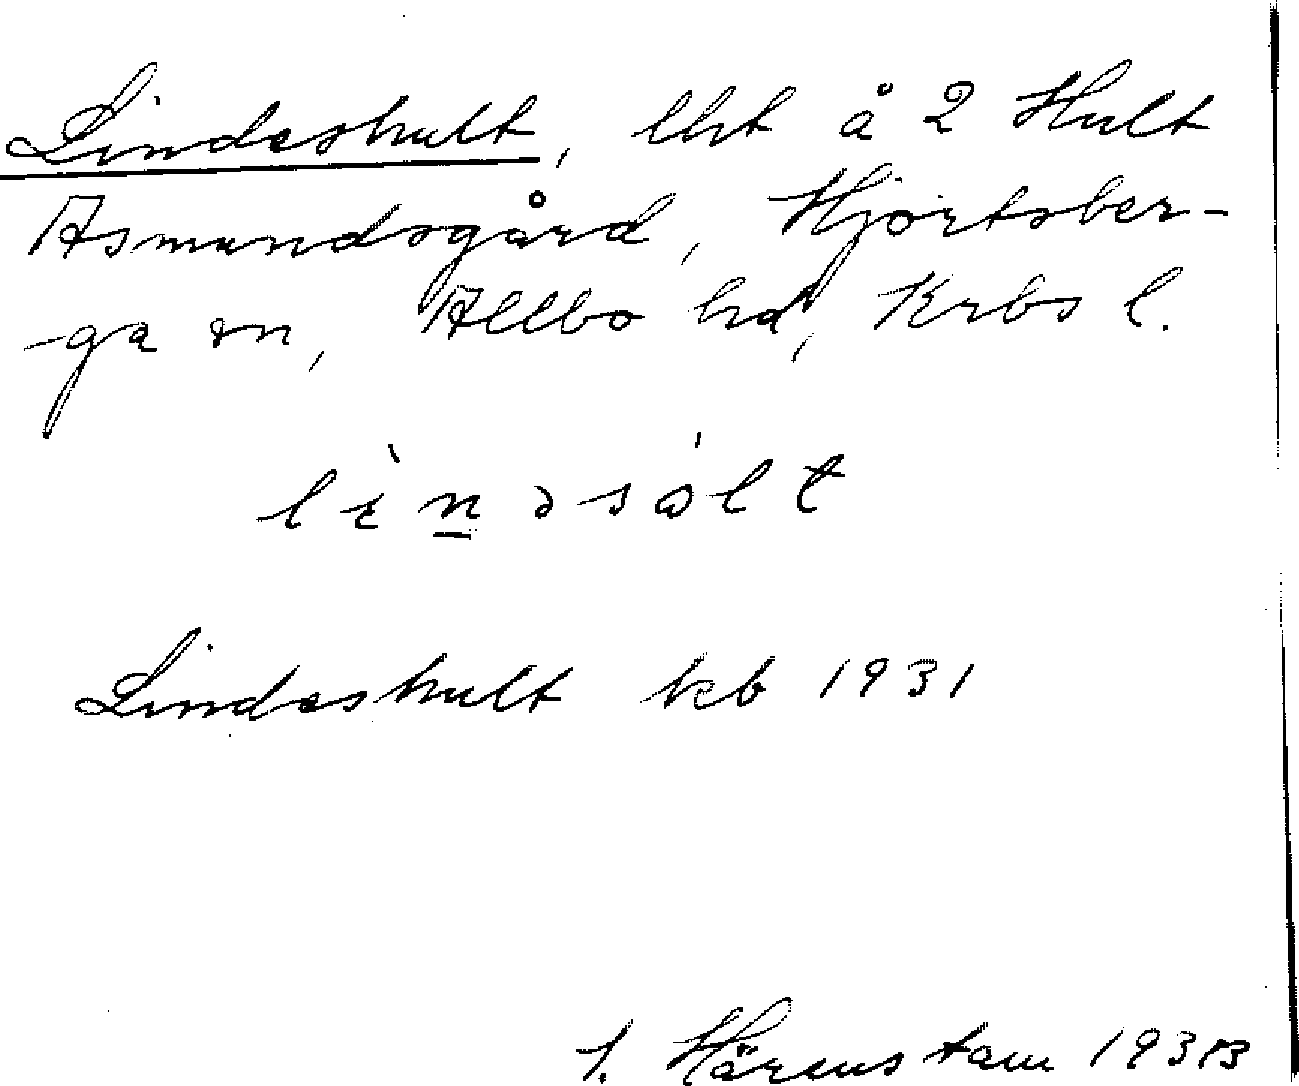 Lindeshult, lht å 2 Hult
Asmundsgård, Hjortsber-
-ga sn, Allbo hd, Krbs l.
lìnəsólt
Lindeshult kb 1931
Härenstam 193